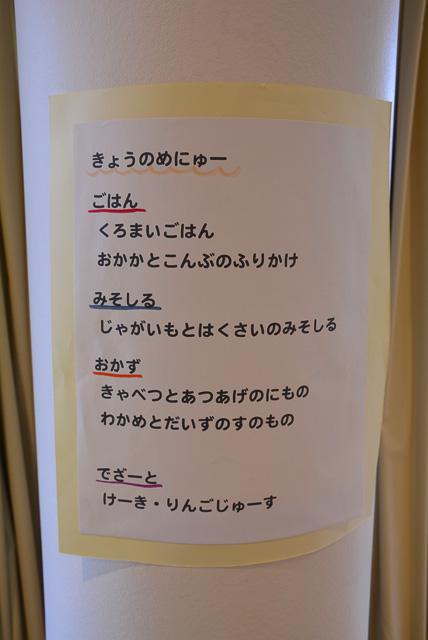 きょうのめにゅー
ごはん
くろまいごはん
おかかとこんぶのふりかけ
みそしる
じゃがいもとはくさいのみそしる
おかず
きゃべつとあつあげのにもの
わかめとだいずのすのもの
でざーと
けーき・りんごじゅーす